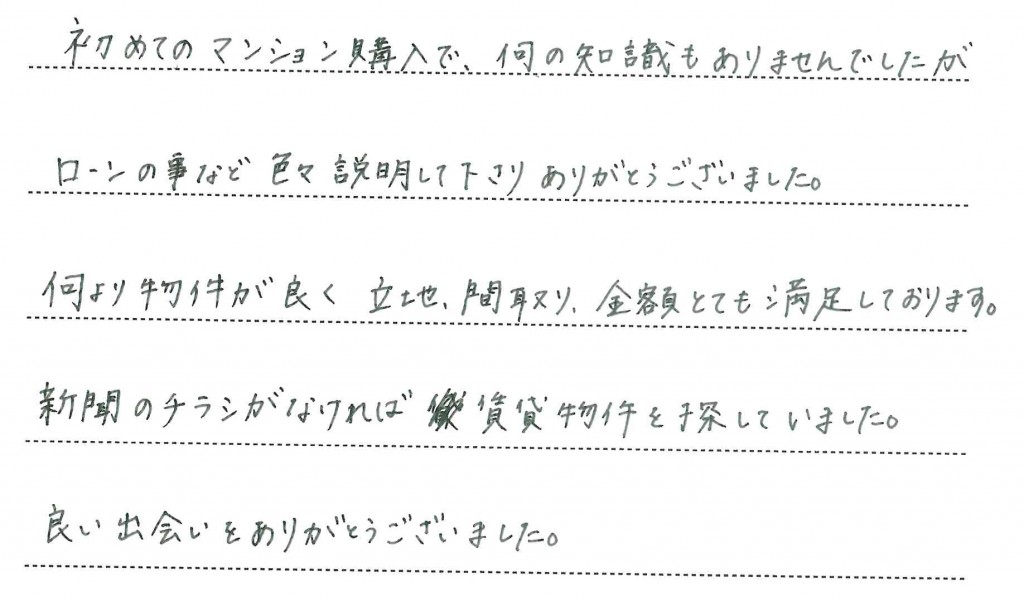 初めてのマンション購入で、何の知識もありませんでしたが
ローンの事など色々説明して下さりありがとうございました。
何より物件が良く立地、間取り、金額とても満足しております。
新聞のチラシがなければ賃貸物件を探していました。
良い出会いをありがとうございました。